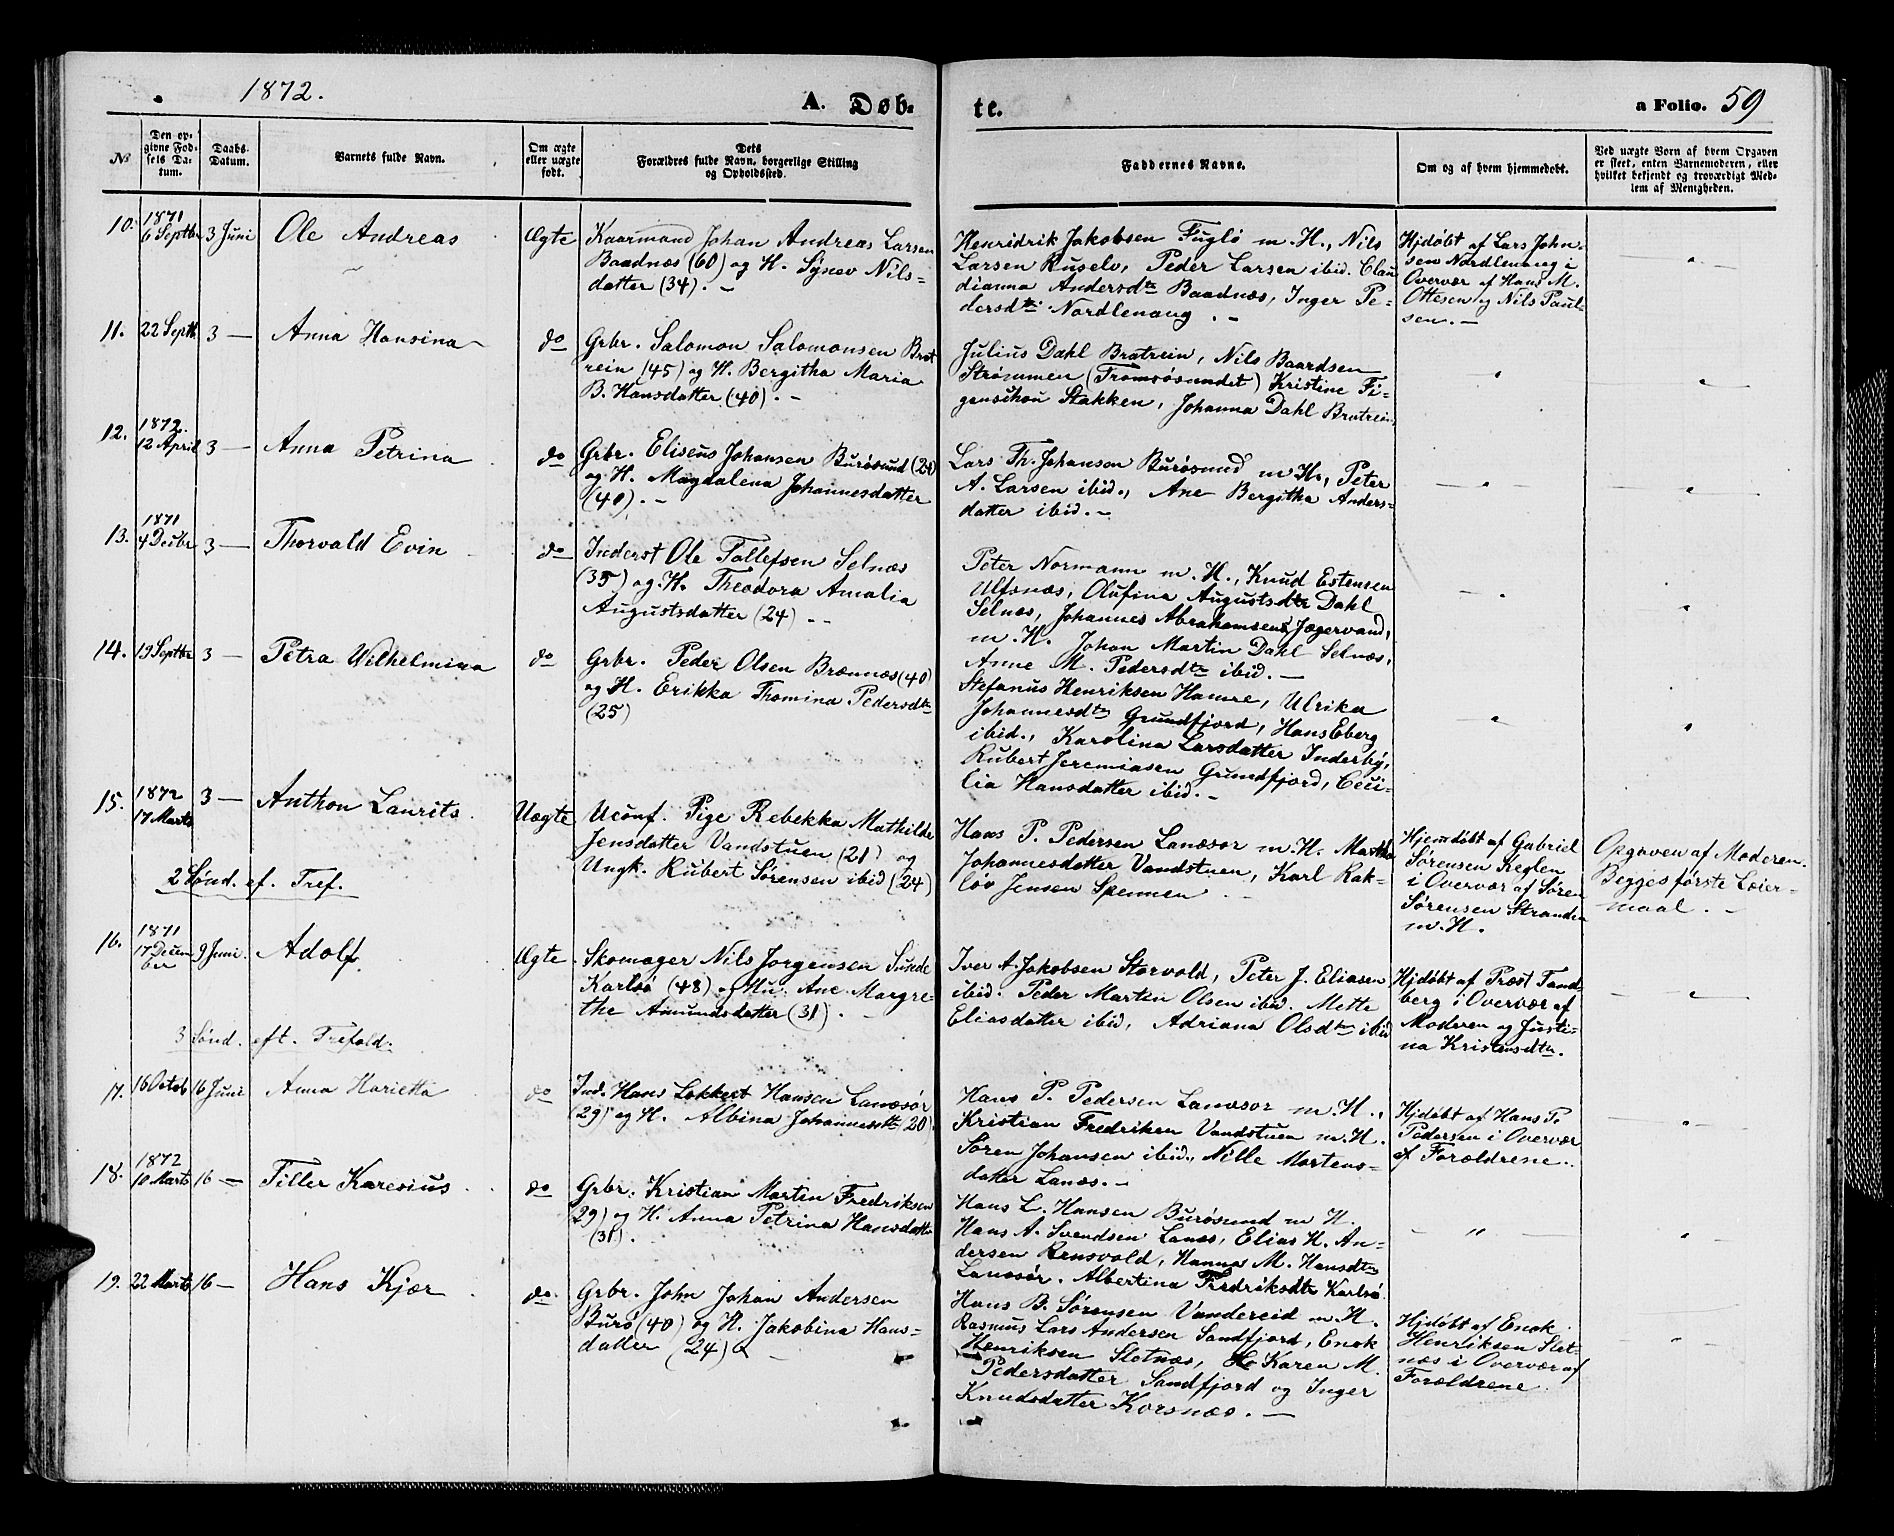 1872.
A. Døb-
te.
a Folio. 59
No
Den op-
givne Fød-
sels Da-
tum.
Daabs-
Datum.
Barnets fulde Navn.
Om ægte
eller uægte
født.
Dets
Forældres fulde Navn, borgerlige Stilling
og Opholdssted.
Faddernes Navne.
Om og af hvem hjemmedøbt.
Ved uægte Børn af hvem Opgaven
er skeet, enten Barnemoderen, eller
hvilket bekjendt og troværdigt Med-
lem af Menigheden.
10.
1871
6 Septbr
3 Juni
Ole Andreas
Ægte
Kaarmand Johan Andreas Larsen
Baadnæs (60) og H. Synev Nils-
datter (34). –
Henridrik Jakobsen Fuglø m. H., Nils
Larsen Ruselv, Peder Larsen ibid. Clau
dianna Andersdtr Baadnæs, Inger Pe-
dersdtr Nordlenang. –
Hjdøbt af Lars John-
sen Nordlenang i
Overvær af Hans M.
Ottesen og Nils Paul-
sen. –
11.
22 Septbr
3 —
Anna Hansina
do
Grbr. Salomon Salomonsen Brat
rein (45) og H. Bergitha Maria
B. Hansdatter (40). –
Julius Dahl Bratrein, Nils Baardsen
Strømmen (Tromsøsundet) Kristine Fi-
genschou Stakken, Johanna Dahl Bratrein
12.
1872.
12 April
3 —
Anna Petrina
do
Grbr. Eliseus Johansen Burøsund (24)
og H. Magdalena Johannesdatter
(40). –
Lars Th. Johansen Burøsund m H., Peter
A. Larsen ibid., Ane Bergitha Anders-
datter ibid. –
13.
1871
4 Decbr
3 —
Thorvald Evin
do
Inderst Ole Tollefsen Selnæs
(35) og H. Theodora Amalia
Augustsdatter (24) –
Peter Normann m. H., Knud Estensen
Ulfsnæs, Olufina Augustsdtr Dahl
Selnæs, Johannes Abrahamsen Jægervand,
m. H. Johan Martin Dahl Selnæs,
Anne M. Pedersdtr ibid. –
14.
19 Septbr
3 —
Petra Wilhelmina
do
Grbr. Peder Olsen Brænnæs (40)
og H. Erikka Thomina Pedersdtr
(25)
Stefanus Henriksen Hamre, Ulrika
Johannesdtr Grundfjord, Hans Eberg
ibid., Karolina Larsdatter Inderby,
Rubert Jeremiasen Grundfjord, Ceci-
lia Hansdatter ibid. –
15.
1872
17 Marts
3 —
Anthon Laurits
Uægte
Uconf. Pige Rebekka Mathilde
Jensdatter Vandstuen (21) og
Ungk. Rubert Sørensen ibid (24)
Hans P. Pedersen Lanæsør m H. Martha
Johannesdatter Vandstuen, Karl Rak-
løv Jensen Spennen
Hjemdøbt af Gabriel
Sørensen Keglen
i Overvær af Søren
Sørensen Stranden
m. H.
Opgaven af Moderen.
Begges første Leier-
maal. –
2 Sønd. ef. Tref.
16.
1871
17 Decem
ber
9 Juni.
Adolf.
Ægte
Skomager Nils Jørgensen Sunde
Karlsø (48) og Hu. Ane Margre-
the Amundsdatter (31).
Iver A. Jakobsen Storvold, Peter J. Eliasen
ibid. Peder Martin Olsen ibid. Mette
Eliasdatter ibid, Adriana Olsdtr ibid
Hjdøbt af Præst Tand
berg i Overvær af
Moderen og Justi-
na Kristensdtr.
3 Sønd. eft. Trefold.
17.
16 Octob
16 Juni
Anna Harietta
do
Ind. Hans Lokkert Hansen Lanæsør
(29) og H. Albina Johannesdtr (20).
Hans P. Pedersen Lanæsør m H.,
Kristian Fredriken Vandstuen m. H.
Søren Johansen ibid., Nille Mortens-
datter Lanæs. –
Hjdøbt af Hans P.
Pedersen i Overvær
af Forældrene.
18.
1872
10 Marts
16 —
Tiller Karesius
do
Grbr. Kristian Martin Fredriksen
(29) og H. Anna Petrina Hansdattr
(31).
Hans L. Hansen Burøsund m H.
Hans A. Svendsen Lanæs, Elias H. An-
dersen Rensvold, Hanna M. Hansdtr
Lanæsør. Albertina Fredriksdtr Karlsø.
19.
22 Marts
16 —
Hans Kjær
do.
Grbr. John Johan Andersen
Burø (40) og H. Jakobina Hans-
datter (24)
Hans B. Sørensen Vandereid m H.
Rasmus Lars Andersen Sandfjord, Enok
Henriksen Sletnæs, Karen M.
Pedersdatter Sandfjord og Inger
Knudsdatter Korsnæs. –
Hjdøbt af Enok
Henriksen Slet-
næs i Overvær af
Forældrene.